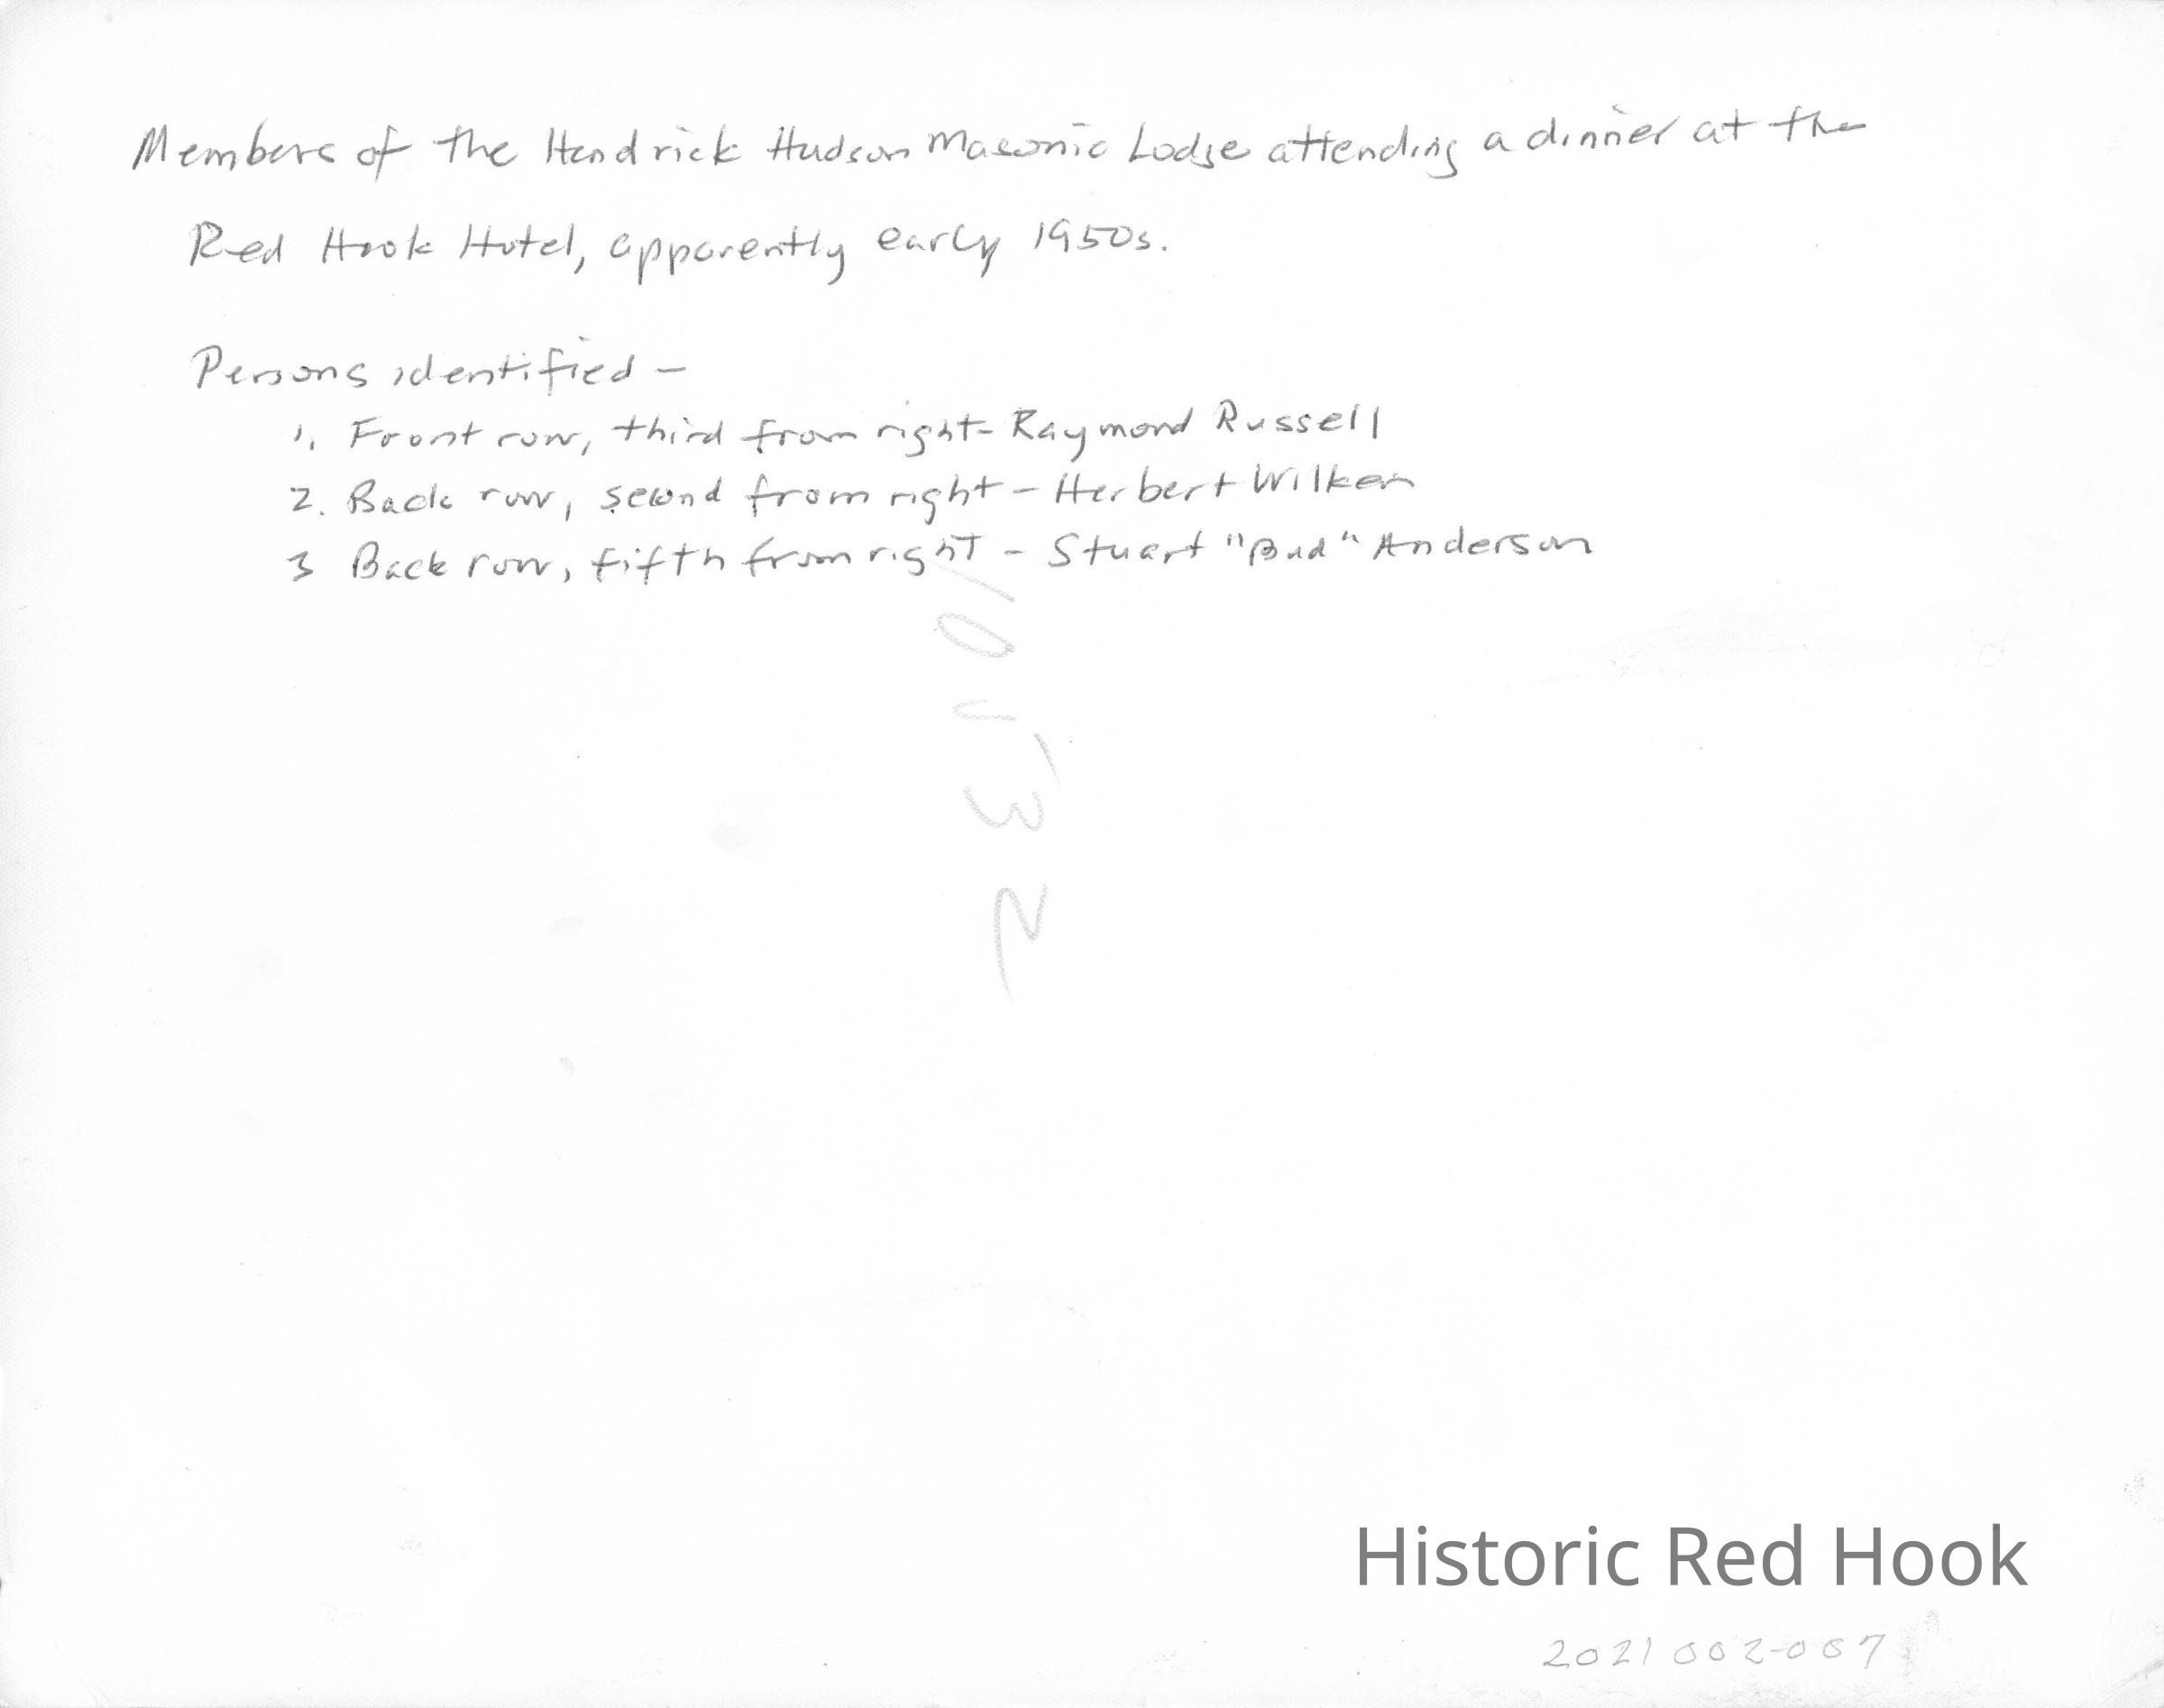 Members of the Hendrick Hudson Masonic Lodge attending a dinner at the
Red Hook Hotel, apparently early 1950s.
Persons identified -
1. Front row, third from right - Raymond Russell
2. Back row, second from right - Herbert Wilken
3 Back row, fifth from right - Stuart "Bud" Anderson
Historic Red Hook